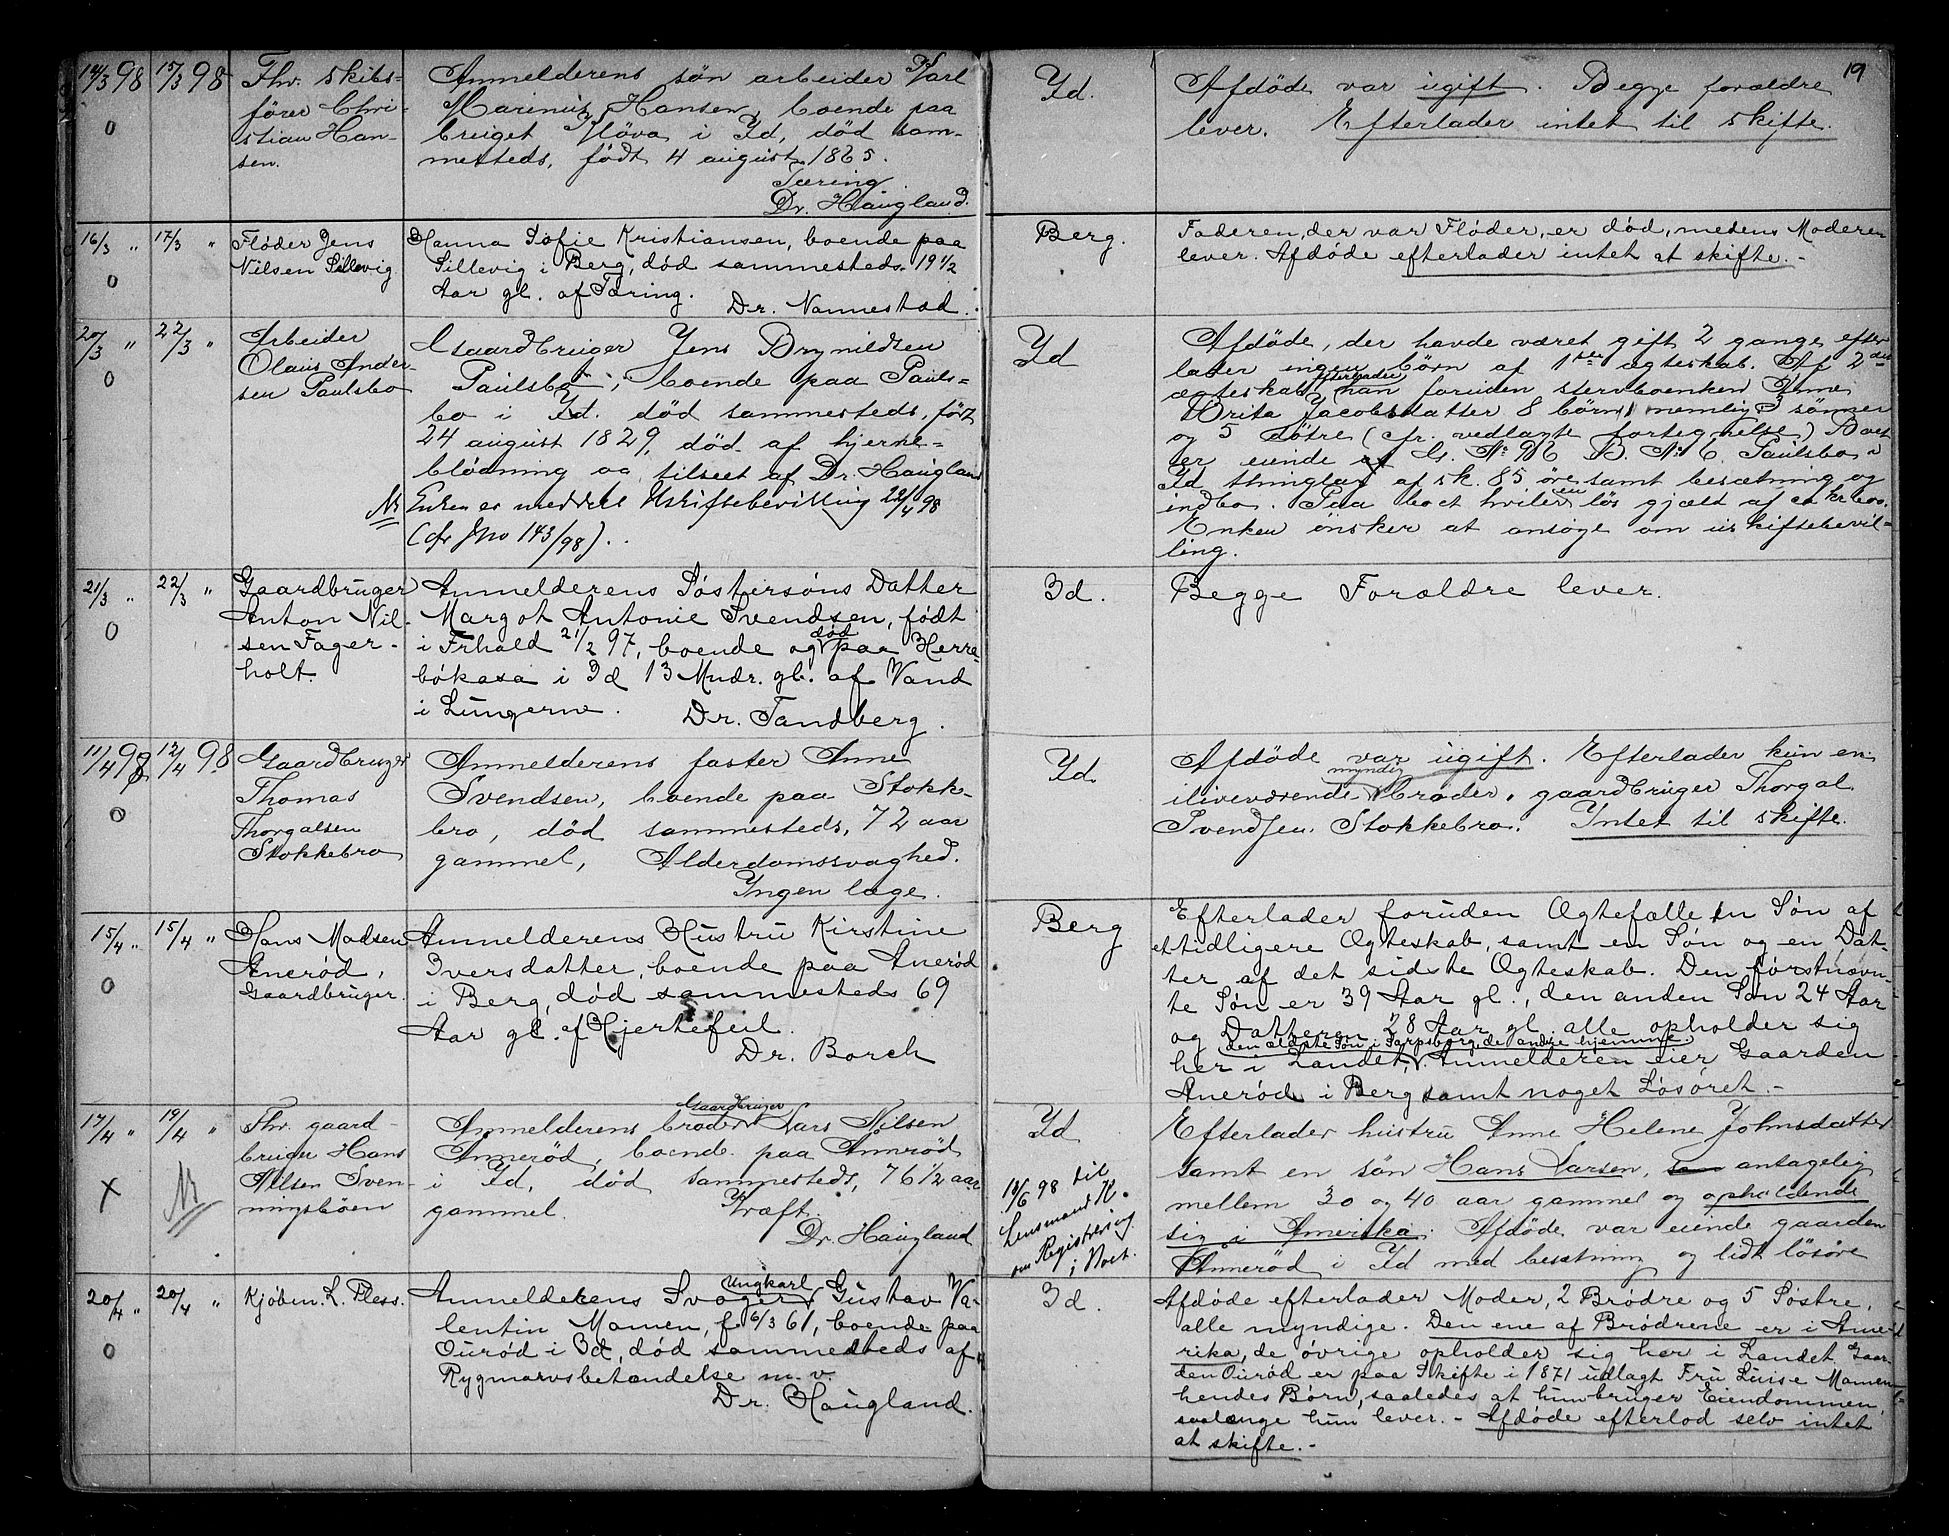 19
14/3 98 15/3 98
0
Fhv. skibs-
fører Chri-
stian Han-
sen.
Anmelderens søn arbeider Karl
Marinus Hansen, boende paa
bruget Kløva i Id, død sam-
mesteds, født 4 august 1865.
Tæring
Dr. Haugland.
Id.
Afdøde var ugift. Begge forældre
lever. Efterlader intet til skifte.
16/3 " 17/3 "
0
Fløder Jens
Nilsen Sillevig
Hanna Sofie Kristiansen, boende paa
Sillevig i Berg, død sammesteds 19 1/2
Aar gl. af Tæring.
Dr. Nannestad.
Berg.
Faderen, der var Fløder, er død, medens Moderen
lever. Afdøde efterlader intet at skifte. -
20/3 " 22/3 "
0
Arbeider
Olaus Ander-
sen Paulsbo
Gaardbruger Jens Brynildsen
Paulsbo, boende paa Pauls=
bo i Id. død sammesteds, født
24 august 1829, død af hjerne=
blødning og tilseet af Dr. Haugland
NB Enken er meddelt Uskiftebevilling 22/4 98
(cfr Jno 143/98).
Id
Afdøde, der havde været gift 2 gange efter
lader ingen børn af 1ste ægteskab. Af 2det
ægteskab efterlader han foruden stervboenken Anne
Brita Jacobsdatter 8 børn, nemlig 3 sønner
og 5 døtre (cfr. vedlagte fortegnelse) Boet
er eiende af G. No 96 B. No 6 Paulsbo i
Id thinglag af sk. 85 øre samt besætning og
indbo. Paa boet hviler en løs gjæld af ca Kr 600.
Enken ønsker at ansøge om uskiftebevil-
ling.
21/3 " 22/3 "
0
Gaardbruger
Anton Nil-
sen Fager-
holt.
Anmelderens Søstersøns Datter
Margot Antonie Svendsen, født
i Frhald 21/2 97, boende og død paa Herre-
bøkasa i Id 13 Mndr. gl. af Vand
i Lungerne.
Dr. Tandberg.
Id.
Begge Forældre lever.
11/4 98 12/4 98
0
Gaardbruger
Thomas
Thorgalsen
Stokkebro
Anmelderens faster Anne
Svendsen, boende paa Stokk-
bro, død sammesteds, 72 aar
gammel, Alderdomssvaghed.
Ingen læge.
Id.
Afdøde var ugift. Efterlader kun en
ilivevœrende myndig broder, gaardbruger Thorgal
Svendsen Stokkebro. Intet til skifte.
15/4 " 15/4 "
0
Hans Madsen
Anerød,
Gaardbruger.
Anmelderens Hustru Kirstine
Iversdatter, boende paa Anerød
i Berg, død sammesteds 69
Aar gl. af Hjertefeil.
Dr. Borch
Berg
Efterlader foruden Ægtefælle en Søn af
et tidligere Ægteskab, samt en Søn og en Dat-
ter af det sidste Ægteskab. Den førstnævn-
te Søn er 39 Aar gl., den anden Søn 24 Aar
og Datteren 28 Aar gl. alle opholder sig
den ældste Søn i Sarpsborg, de andre hjemme.
her i Landet, Anmelderen eier Gaarden
Anerød i Berg samt noget Løsøret. -
17/4 " 19/4 "
X
NB
Fhv. gaard-
bruger Hans
Nilsen Sven-
ningsbøen
Anmelderens broder gaardbruger Lars Nilsen
Annerød, boende paa Annerød
i Id, død sammesteds, 76 1/2 aar
gammel. Kræft.
Dr. Haugland
Id
18/6 98 til
Lensmand K.
om Registrering
i Boet.
Efterlader hustru Anne Helene Johnsdatter
samt en søn Hans Larsen, antagelig
mellem 30 og 40 aar gammel og opholdende
sig i Amerika. Afdøde var eiende gaarden
Annerød i Id med besætning og lidt løsøre
20/4 " 20/4 "
0
Kjøbm. L. Pless.
Anmelderens Svoger Ungkarl Gustav Va-
lentin Momen, f. 6/3 61, boende paa
Ourød i Id, død sammesteds af
Rygmarvsbetændelse m. v.
Dr. Haugland.
Id.
Afdøde efterlader Moder, 2 Brødre og 5 Søstre,
alle myndige. Den ene af Brødrene er i Ame-
rika, de øvrige opholder sig her i Landet. Gaar-
den Ourød er paa Skifte i 1871 udlagt Fru Luise Momen
hendes Børn, saaledes at hun bruger Eiendommen,
saalænge hun lever. - Afdøde efterlod selv intet
at skifte. -